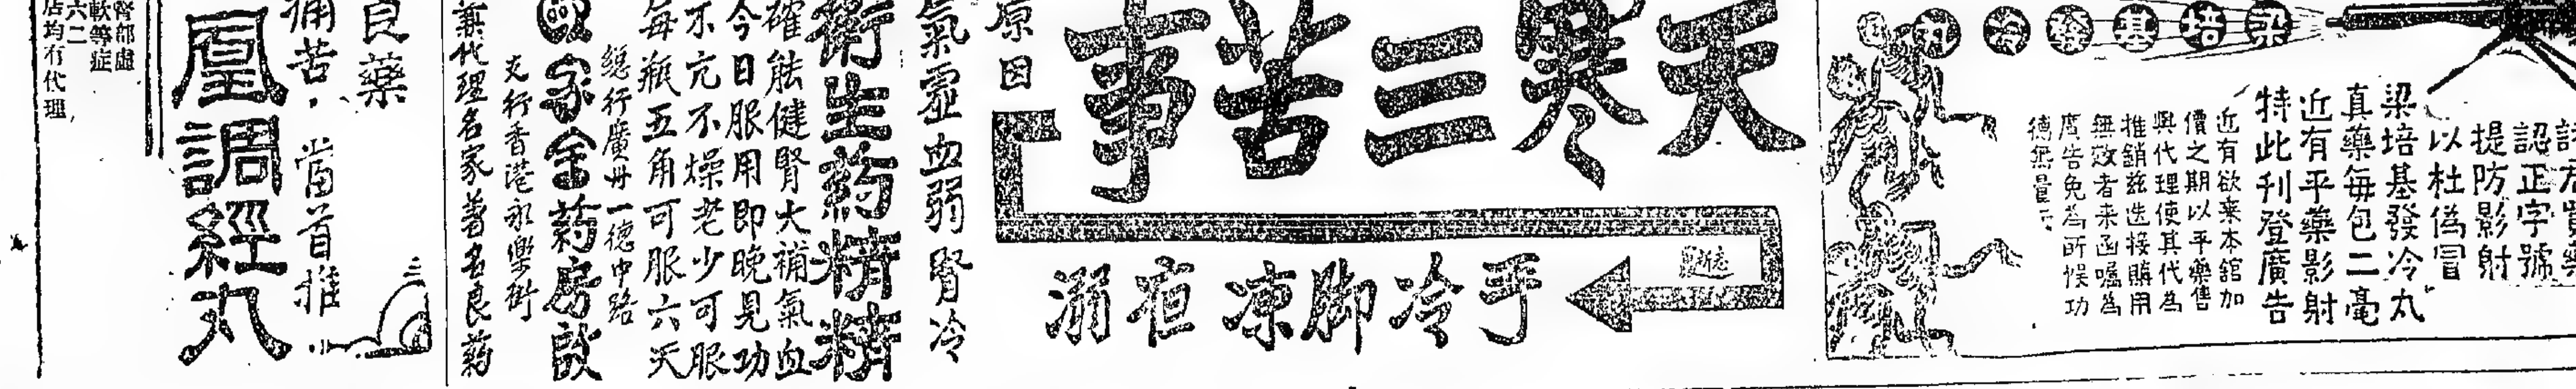 梁培基發冷丸
認正字號
提防影射
以杜偽冒
梁培基發冷丸
真藥每包二毫
近有平藥影射
特此刊登廣告
近有欲乘本舘加
價之期以平藥售
興代理使其代為
推銷兹迭接購用
無效者来函囑為
廣告免為所悞功
德無量
天寒三苦事
手冷脚凍夜溺
原因
氣虛血弱腎冷
衛生药精精
確能健腎大補氣血
今日服用即晚見功
不亢不燥老少可服
每瓶五角可服六天
總行廣州一德中路
支行香港永樂街
家全药房啟
兼代理名家著名良药
良藥
痛苦，當首推
凰調經丸
腎部虛
軟等症
六二
店均有代理